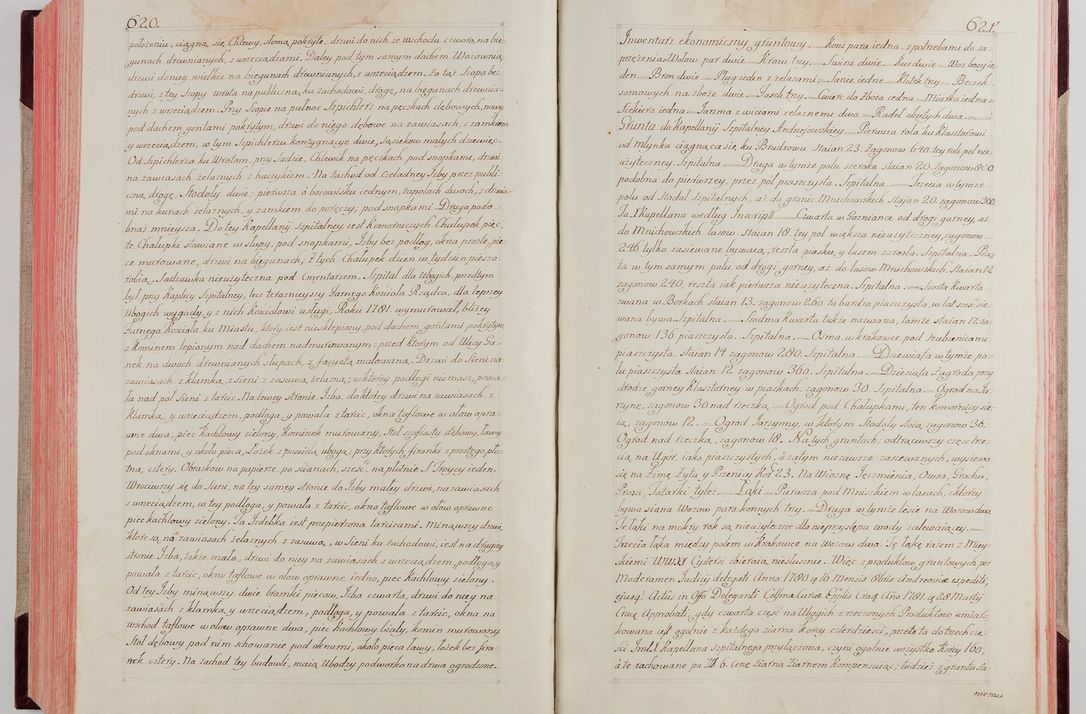 620.
położeniu, ciągną się Chlewy, słomą pokryte, drzwi do nich ze wschodu czworo, na bie-
gunach drewnianych, z wrzeciądzami. Daley pod tym samym dachem Wozownia,
drzwi do niey wielkie na biegunach drewnianych, z wrzeciądzem. Za tąż Szopa bez
drzwi, z tey Szopy wrota na publiczną, ku zachodowi, drogę, na biegunach drewnia-
nych z wrzeciądzem. Przy Szopie na pułnoc Szpichlerz na pęckach dębowych, nowy
pod dachem gontami pokrytym, drzwi do niego dębowe na zawiasach, z zamkiem
y wrzeciądzem, w tym Szpichlerzu kondygnacye dwie, Sąsieków małych dziewięć.
Od Szpichlerza ku Wrotom, przy Sadzie, Chlewik na pęckach pod snopkami, drzwi
na zawiasach żelaznych z haczykiem. Na zachod od Czeladney Izby przez publi-
czną, drogę, Stodoły dwie, pierwsza o boiowisku iednym, zapolach dwoch, z drzwia-
mi na kunach żelaznych, y zamkiem do poręczy, pod snopkami. Druga podo-
bnaż mnieysza. Do tey Kapellanij Szpitalney, iest Komorniczych Chałupek pięć,
te Chałupki stawiane w słupy, pod snopkami, Izby bez podłog, okna proste, pie-
ce murowane, drzwi na biegunach; z tych Chałupek dzień w tydzień pieszo
robią. Sadzawka nieużyteczna pod Cmentarzem. Szpital dla Ubogich, przedtym
był przy Kaplicy Szpitalney, lecz teraznieyszy Farnego Kościoła Rządca, dla lepszey
Ubogich wygody, y z nich Kościołowi usługi, Roku 1781. wymurował, bliżey
Farnego Kościoła ku Miastu, który iest niesklepiony, pod dachem, gontami pokrytym,
z Kominem lepionym nad dachem nadmurowanym: przed ktorym od Ulicy Ga-
nek na dwoch drewnianych słupach, z facyatą malowaną. Drzwi do Sieni na
zawiasach z klamką, z Sieni z zasuwą, żelazną; w ktorey podłogi niemasz, powa-
ła nad pol Sieni z tarcic. Na lewey stronie Izba, do ktorey drzwi na zawiasach z
klamką, y wrzeciądzem, podłogą, y powałą z tarcic, okna taflowe w ołow opra-
wne dwa, piec kachlowy zielony, Kominek murowany, Stoł szafiasty dębowy, ławy
pod oknami, y około pieca, Łożek z pościelą ubogą: przy których, firanki z prostego płó-
tna, cztery. Obrazkow na papierze, po ścianach, sześć, na płótnie S. Troycy ieden.
Wrociwszy się do Sieni, na tey samey stronie do Izby małey drzwi, na zawiasach
z wrzeciądzem, w tey podłoga, y powała z tarcic, okna taflowe w ołow oprawne
piec kachlowy zielony. Ta Izdebka iest przepierzona tarcicami. Minąwszy drzwi,
które są, na zawiasach żelaznych z zasuwą, w Sieni ku zachodowi, iest na drugiey
stronie Izba, także mała, drzwi do niey na zawiasach z wrzeciądzem, podłogą, y
powała z tarcic, okno taflowe w ołow oprawne iedno, piec Kachlowy zielony.
Od tey Izby minąwszy dwie bramki piecow, Izba czwarta, drzwi do niey na
zawiasach z klamką, y wrzeciądzem, podłoga, y powała z tarcic, okna na
wschod taflowe w ołow oprawne dwa, piec Kachlowy biały, komin murowany
Stoł dębowy pod nim schowanie pod oknami, około pieca ławy, łożek bez fira-
nek cztery. Na zachod tey budowli, maią Ubodzy podworko na drwa ogrodzone.
621.
Inwentarz ekonomiczny gruntowy. Koni para iedna z potrzebami do za-
przężenia. Wołow par dwie. Krow trzy. Swini dwie. Kur dwie. Woz bosy ie-
den. Bron dwie. Pług ieden z żelazami. Sanie iedne. Klatek trzy. Beczek
zamowych na zboże dwie. Faseli trzy. Cwierć do Zboża iedna. Miarka iedna.
Siekiera iedna. Jarzma z wiciami żelaznemi dwa. Radeł okutych dwa.
Grunta do Kapellanij Szpitalney Andrzejowskiey. Pierwsza rola ku Klasztorowi
od Młynka ciągnąca się, ku Brudzowu Staian 23. Zagonow 640. tey roli poł nie-
użyteczney. Szpitalna. Druga w tymże polu szeroka staian 20. zagonow 800
podobna do pierwszey, przez poł piaszczysta. Szpitalna. Trzecia w tymże
polu od Stodoł Szpitalnych, aż do granic Mnichowskich Staian 20. zagonow 300
Ta XKapellana według Inscript. Czwarta w Gorniance od drogi gurney, aż
do Mnichowskich lasow. Staian 18. tey poł większa nieużyteczney, zagonow
246 tylko zasiewane bywaią, reszta piasku, y lasem zarosła. Szpitalna. Pią-
ta w tym samym polu od drogi gorney, aż do lasow Mnichowskich. Staian 12
zagonow 240. reszta iak pierwsza nieużyteczna. Szpitalna. Szosta Kwarta
zwana w Borkach staian 13. zagonow 260. ta bardzo piaszczysta, w lat sześć sie-
wana bywa. Szpitalna. Siodma Kwarta także nazwana, tamże staian 17. za-
gonow 136 piaszczysta. Szpitalna. Osma w krakowce pod szubienicami
piaszczysta, staian 14 zagonow 280. Szpitalna. Dziewiąta w tymże po-
lu piaszczysta Staian 12. zagonow 360. Szpitalna. Dziesiąta Zagroda, przy
drodze gorney Klasztorney w piaskach, zagonow 30. Szpitalna. Ogrod na Ja-
rzynę, zagonow 30 nad rzeczką. Ogrod pod Chałupkami, ten komornicy sie-
ią, zagonow 12. Ogrod Jarzymy, w ktorym Stodoły stoią, zagonow 36.
Ogrod nad rzeczką, zagonow 18. Na tych gruntach, odtrąciwszy część trze-
cią, na Ugor, iako piaszczystych, a zatym niezawsze zasiewanych, wysiewa
się na Zimę Żyta, y Pszenicy Kor. 23. Na Wiosnę Jęczmienia, Owsa, Grochu,
Prosa, Tatarki tyleż. Łąki. Pierwsza pod Mniskiem w lasach, z ktorey
bywa siana Wozow parokonnych trzy. Druga w tymże lesie na Wozow dwa.
Te łąki na mokry rok są, nieużyteczne dla nieprzystępu wody zalewaiącey.
Trzecia łąka między polem w Krakowce na Wozow dwa. Tę łąkę razem z Mniy-
skiemi WWXX Cystersi zbieraią, niesłusznie. Więc z produktow gruntowych, per
Moderamen Judicij delegati Anno 1780. q 16 Mensis 8bris Andreoviae expediti,
ejusq: Actis in Offo Deleganti Celsmo Curiae Eppli Crac. Ano 1781. q 28 Martij
Crac. Approbati; gdy czwarta część na Ubogich z rzeczonych Produktow umiar-
kowana iest, ogolnie z każdego ziarna Korcy czterdzieści, przeto ta do trzech czę-
ści Imci X Kapellana szpitalnego przyłączona, czyni ogolnie wszystko Korcy 160,
a te rachowane po Zł. 6. Cenę Ziarna Ziarnem Kompensuiąc; tudzież z gruntu Sa-
memu